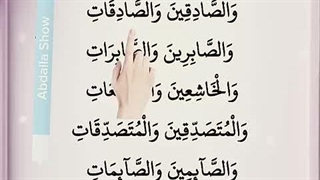 وَالصَّادِقِينَ وَالصَّادِقَاتِ
وَالصَّابِرِينَ وَالصَّابِرَاتِ
وَالْخَاشِعِينَ
وَالْمُتَصَدِّقِينَ وَالْمُتَصَدِّقَاتِ
وَالصَّآئِمِينَ وَالصَّآئِمَاتِ
Abdalla Show